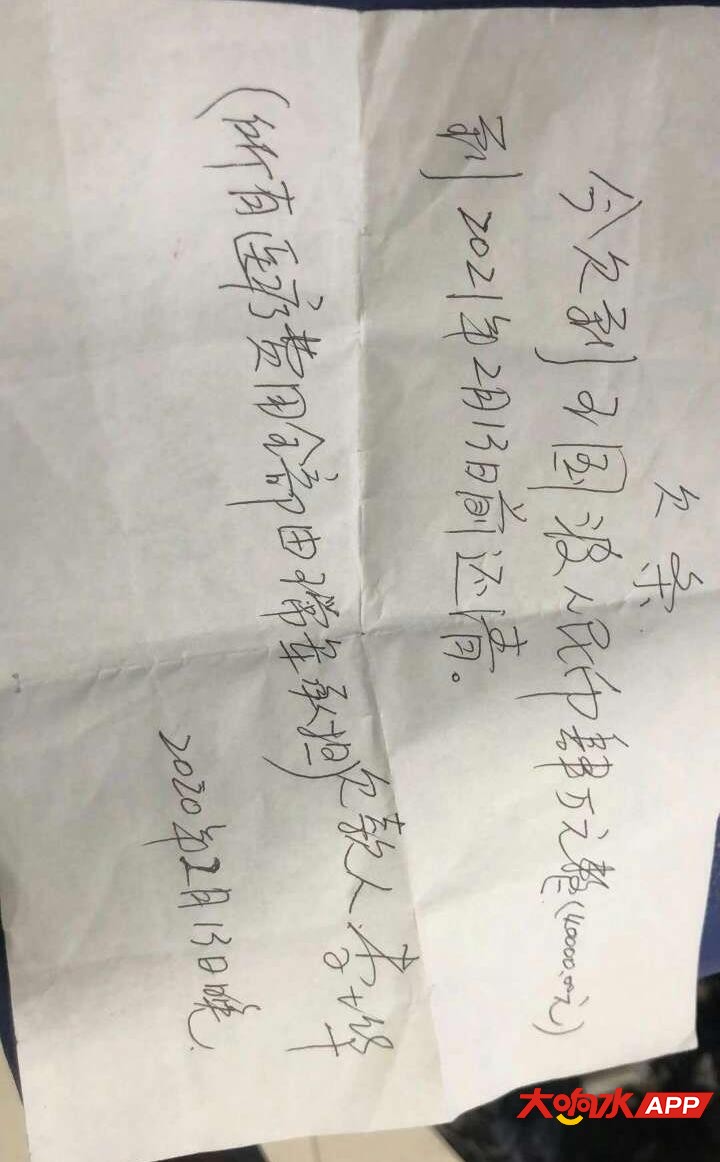 欠条
今欠到王国波人民币肆万元整(40000.00元)
到2021年2月13日前还清。
(所有医疗费用全部由承担)
欠款人:李
2020年2月13日晚
大响水APP